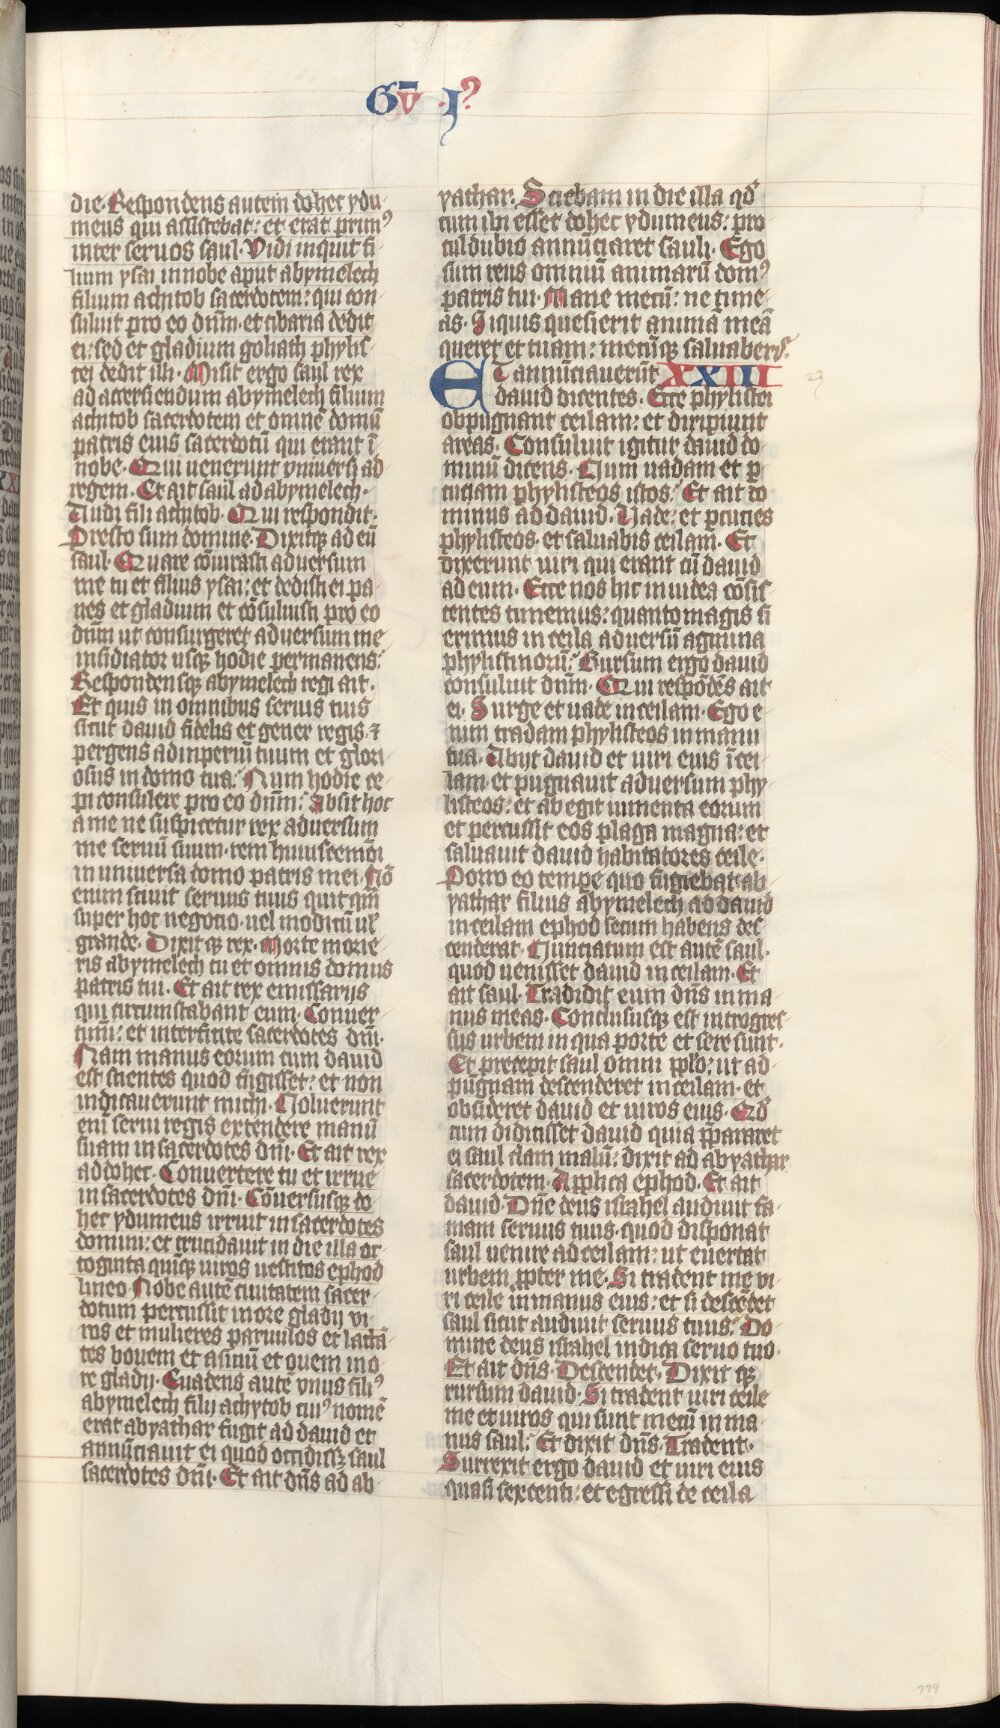 Gū · I?
die. Respondens autem dohec ydu
meus qui assistebat: et erat prim9
inter seruos saul. Vidi inquit fi
lium ysai in nobe aput abymelech
filium achitob sacerdotem: qui con
suluit pro eo dn̄m. et cibaria dedit
ei: sed et gladium goliath phylis
tei dedit illi. Misit ergo saul rex
ad accersiendum abymelech filium
achitob sacerdotem et omnē domū
patris eius sacerdotū qui erant ī
nobe. Qui uenerunt vniuersi ad
regem. Et ait saul ad abymelech.
Audi fili achitob. Qui respondit.
Presto sum domine. Dixitqꝫ ad eū
saul. Quare cōiurasti aduersum
me tu et filius ysai: et dedisti ei pa
nes et gladium et cōsuluisti pro eo
dn̄m ut consurgeret aduersum me
insidiator usqꝫ hodie permanens.
Respondensqꝫ abymelech regi ait.
Et quis in omnibus seruis tuis
sicut dauid fidelis et gener regis. ⁊
pergens ad inperiū tuum et glori
osus in domo tua. Num hodie ce
pi consulere pro eo dn̄m: Absit hoc
a me ne suspicetur rex aduersum
me seruū suum. rem huiuscemōi
in uniuersa domo patris mei. Nō
enim sciuit seruus tuus quitqm̄
super hoc negocio. uel modicū ul̛
grande. Dixitqꝫ rex. Morte morie
ris abymelech tu et omnis domus
patris tui. Et ait rex emissarijs
qui circumstabant eum. Conuer
timi: et interficite sacerdotes dn̄i.
Nam manus eorum cum dauid
est scientes quod fugisset: et non
indicauerunt michi. Noluerunt
enī serui regis extendere manū
suam in sacerdotes dn̄i. Et ait rex
ad dohec. Conuertere tu et irrue
in sacerdotes dn̄i. Cōuersusqꝫ do
hec ydumeus irruit in sacerdotes
domini: et trucidauit in die illa oc
toginta quīqꝫ uiros uestitos ephod
lineo. Nobe autē ciuitatem sacer
dotum percussit in ore gladij vi
ros et mulieres paruulos et lactā
tes bouem et asinū et ouem in o
re gladij. Euadens autē vnus fili9
abymelech filij achytob cui9 nomē
erat abyathar fugit ad dauid et
annūciauit ei quod occidissꝫ saul
sacerdotes dn̄i. Et ait dn̄s ad ab
yathar. Sciebam in die illa qd̛
cum ibi esset dohec ydumeus: pro
culdubio annūciaret sauli. Ego
sum reus omniū animarū dom9
patris tui. Mane mecū: ne time
as. Siquis quesierit animā meā
queret et tuam: mecūqꝫ saluaberis.
ET annūciauerūt XXIII 23
dauid dicentes. Ecce phylistei
obpugnant ceilam: et diripiunt
areas. Consuluit igitur dauid do
minū dicens. Num uadam et p̄
cuciam phylisteos istos. Et ait do
minus ad dauid. Vade: et p̄cucies
phylisteos. et saluabis ceilam. Et
dixerunt uiri qui erant cū dauid
ad eum. Ecce nos hic in iudea cōsis
tentes timemus: quanto magis si
erimus in ceila aduersū agmina
phylistinorū. Rursum ergo dauid
consuluit dn̄m. Qui respōdēs ait
ei. Surge et uade in ceilam. Ego e
nim tradam phylisteos in manu
tua. Abijt dauid et uiri eius ī cei
lam. et pugnauit aduersum phy
listeos: et abegit iumenta eorum
et percussit eos plaga magna: et
saluauit dauid habitatores ceile.
Porro eo tempe quo fugiebat ab
yathar filius abymelech ad dauid
in ceilam ephod secum habens des
cenderat. Nunciatum est autē saul.
quod uenisset dauid in ceilam. Et
ait saul. Tradidit eum dn̄s in ma
nus meas. Conclususqꝫ est introgres
sus urbem in qua porte et sere sunt.
Et precepit saul omni pplo: ut ad
pugnam descenderet in ceilam. et
obsideret dauid et uiros eius. Qd̛
cum didicisset dauid quia p̄pararet
ei saul clam malū: dixit ad abyathar
sacerdotem. Applica ephod. Et ait
dauid. Dn̄e deus israhel audiuit fa
mam seruus tuus. quod disponat
saul uenire ad ceilam: ut euertat
urbem ppter me. Si tradent me vi
ri ceile in manus eius: et si descēdet
saul sicut audiuit seruus tuus. Do
mine deus israhel indica seruo tuo.
Et ait dn̄s. Descendet. Dixit qꝫ
rursum dauid. Si tradent uiri ceile
me et uiros qui sunt mecū in ma
nus saul. Et dixit dn̄s. Tradent.
Surrexit ergo dauid et uiri eius
quasi sexcenti: et egressi de ceila